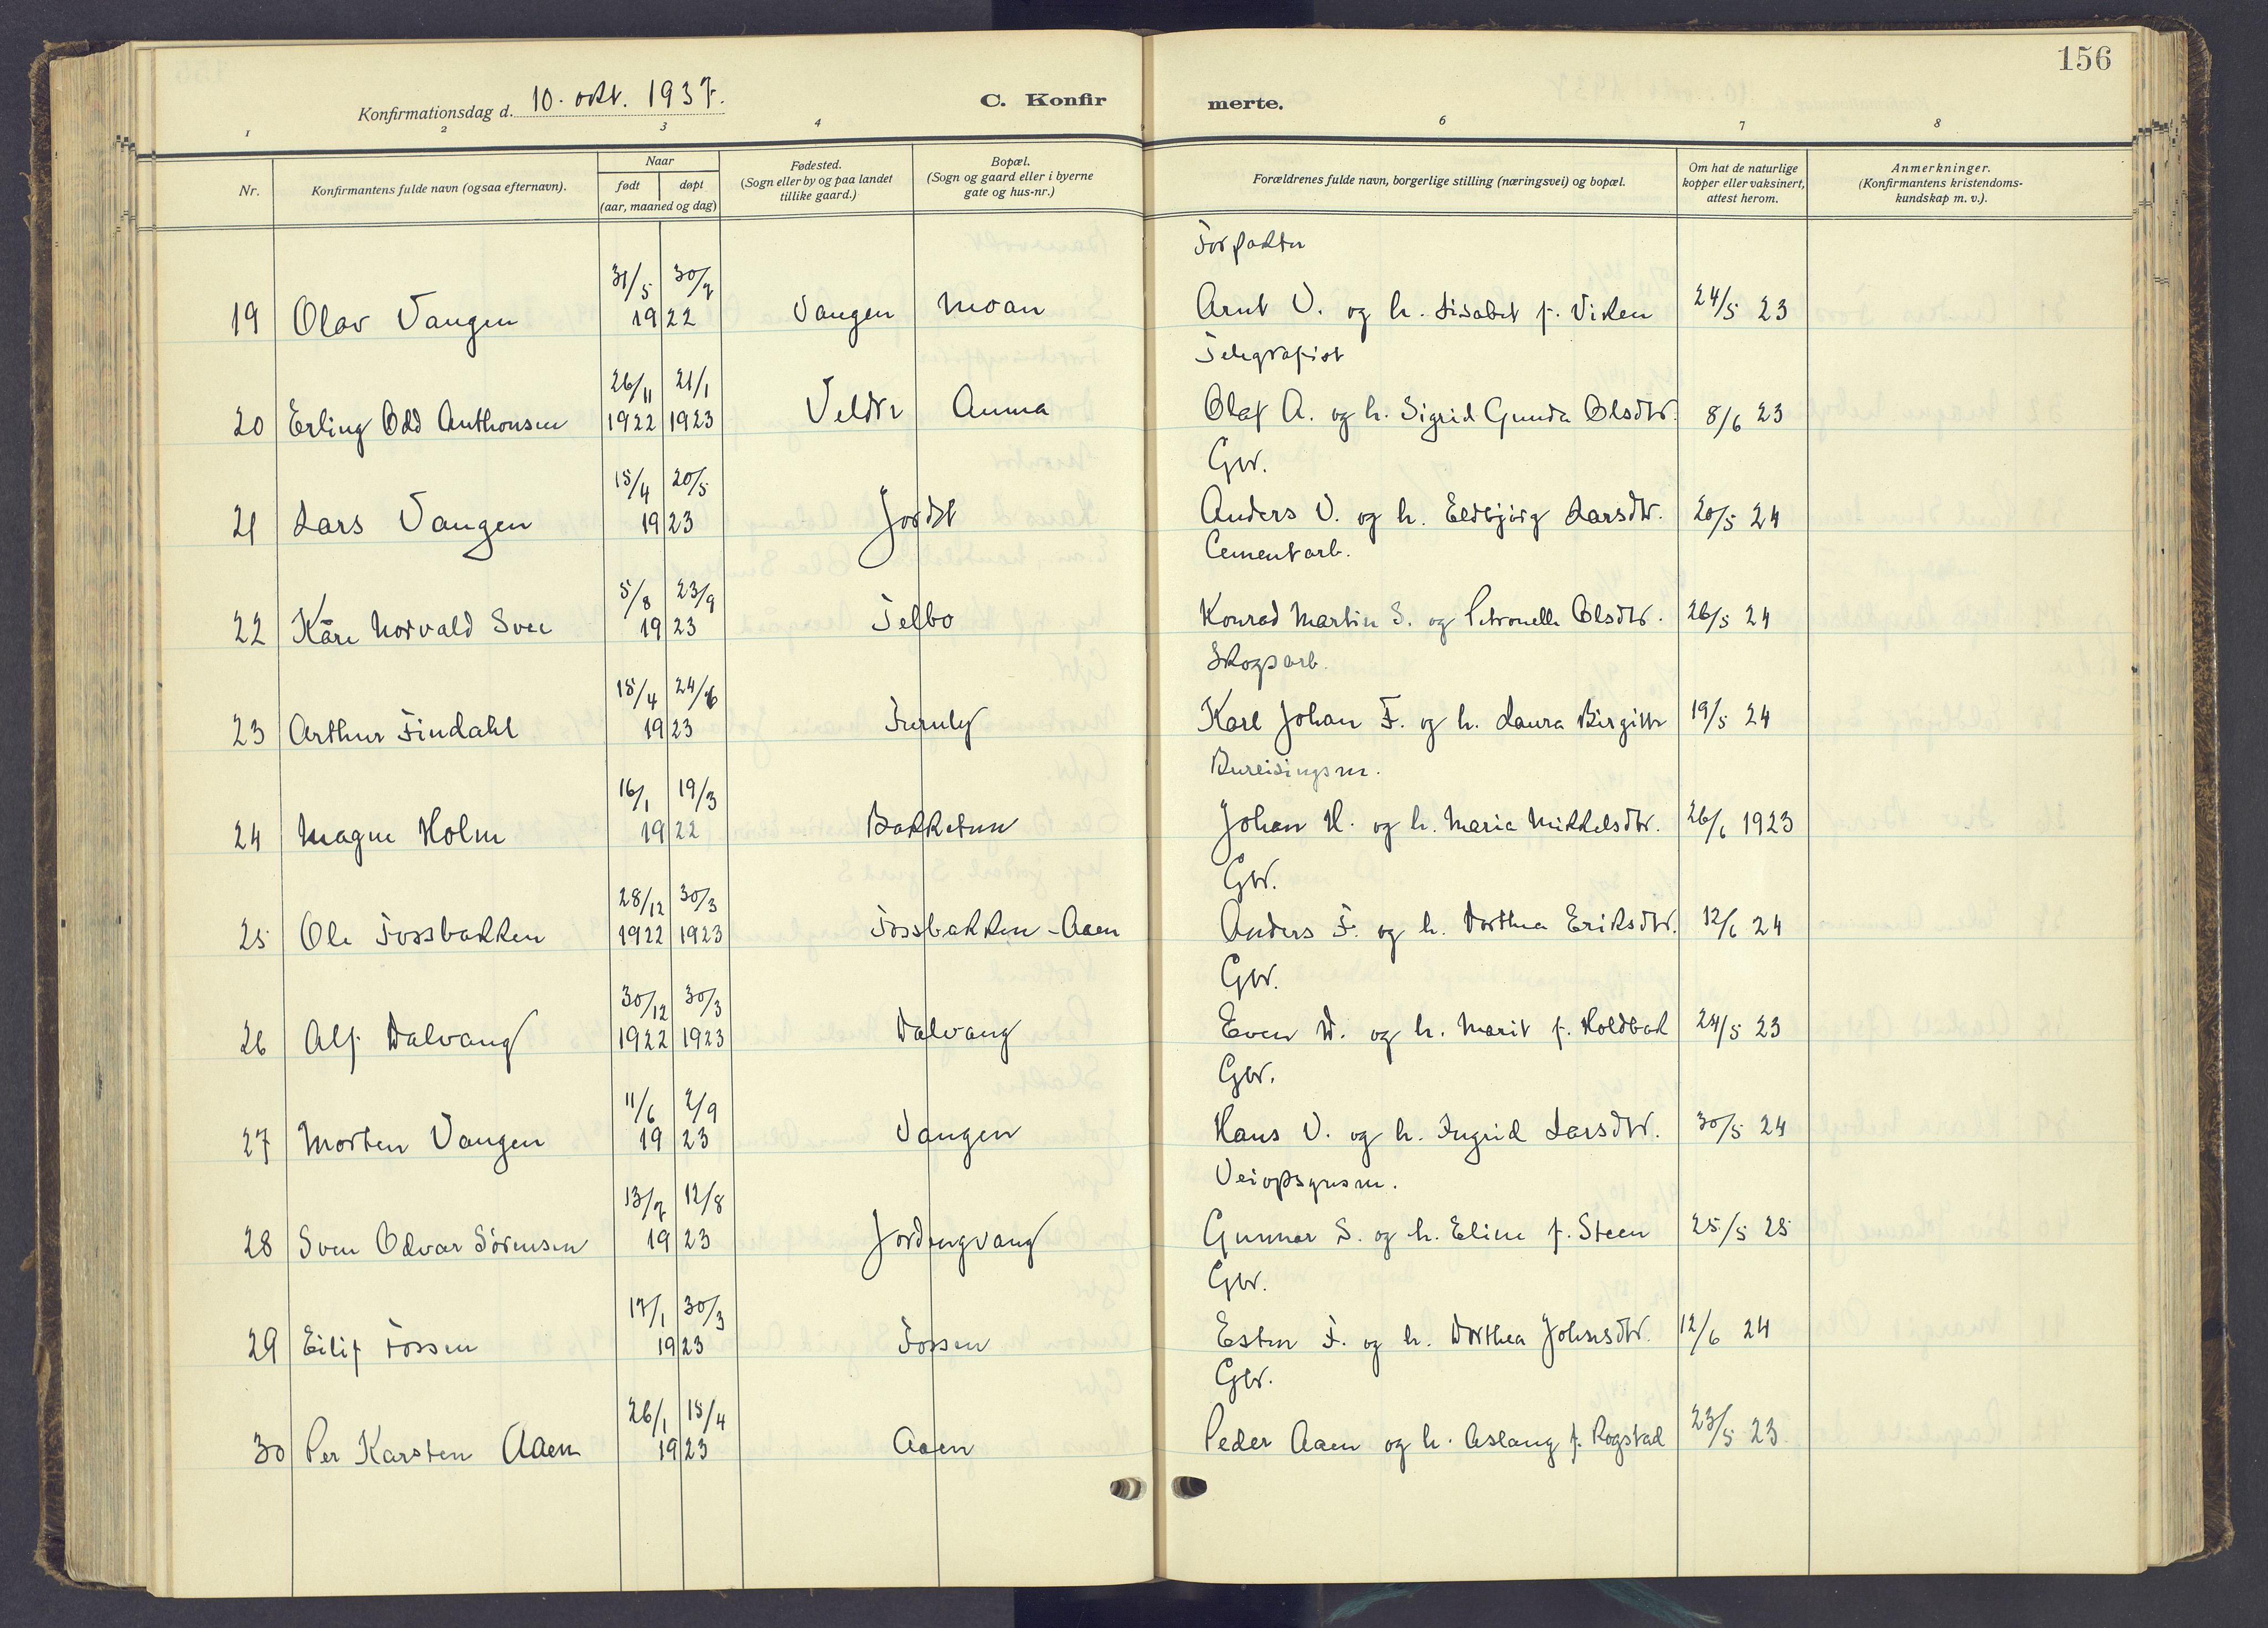 156
Konfirmationsdag d. 10. okt. 1937.
C. Konfir merte.
1 2 3 4 6 7 8
Nr. Konfirmantens fulde navn (ogsaa efternavn). Naar født døpt (aar, maaned og dag) Fødested. (Sogn eller by og paa landet tillike gaard.) Bopæl. (Sogn og gaard eller i byerne gate og hus-nr.) Forældrenes fulde navn, borgerlige stilling (næringsvei) og bopæl. Om hat de naturlige kopper eller vaksinert, attest herom. Anmerkninger. (Konfirmantens kristendoms-kundskap m. v.).
Forpakter
31/5 30/7
19 Olav Vangen 1922 Vangen Moan Arnt V. og h. Lisabet f. Viken 24/5 23
Telegrafist
26/11 21/1
20 Erling Odd Anthonsen 1922 1923 Veldre Auma Olaf A. og h. Sigrid Gunda Olsdtr. 8/6 23
Gbr.
15/4 20/5
21 Lars Vangen 1923 Jordet Anders V. og h. Eldbjörg Larsdtr. 20/5 24
Cementarb.
5/8 23/9
22 Kåre Norvald Svee 1923 Telbo Konrad Martin S. og Petronelle Olsdtr. 26/5 24
Skogsarb.
15/4 24/6
23 Arthur Findahl 1923 Furuly Karl Johan F. og h. Laura Birgitte 19/5 24
Bureisingsm.
16/1 19/3
24 Magne Holm 1922 Bakketun Johan H. og h. Marie Mikkelsdtr. 26/6 1923
Gbr.
28/12 30/3
25 Ole Fossbakken 1922 1923 Fossbakken - Aaen Anders F. og h. Dorthea Eriksdtr. 12/6 24
Gbr.
30/12 30/3
26 Alf Dalvang 1922 1923 Dalvang Even D. og h. Marit f. Holdbak 24/5 23
Gbr.
11/6 2/9
27 Morten Vangen 1923 Vangen Hans V. og h. Ingrid Larsdtr. 30/5 24
Veiopsynsm.
13/7 12/8
28 Sven Odvar Sörensen 1923 Jordengvang Gunnar S. og h. Eline f. Steen 25/5 25
Gbr.
17/1 30/3
29 Eilif Fossen 1923 Fossen Esten F. og h. Dorthea Johnsdtr. 12/6 24
Gbr.
26/1 15/4
30 Per Karsten Aaen 1923 Aaen Peder Aaen og h. Aslaug f. Rogstad 23/5 23